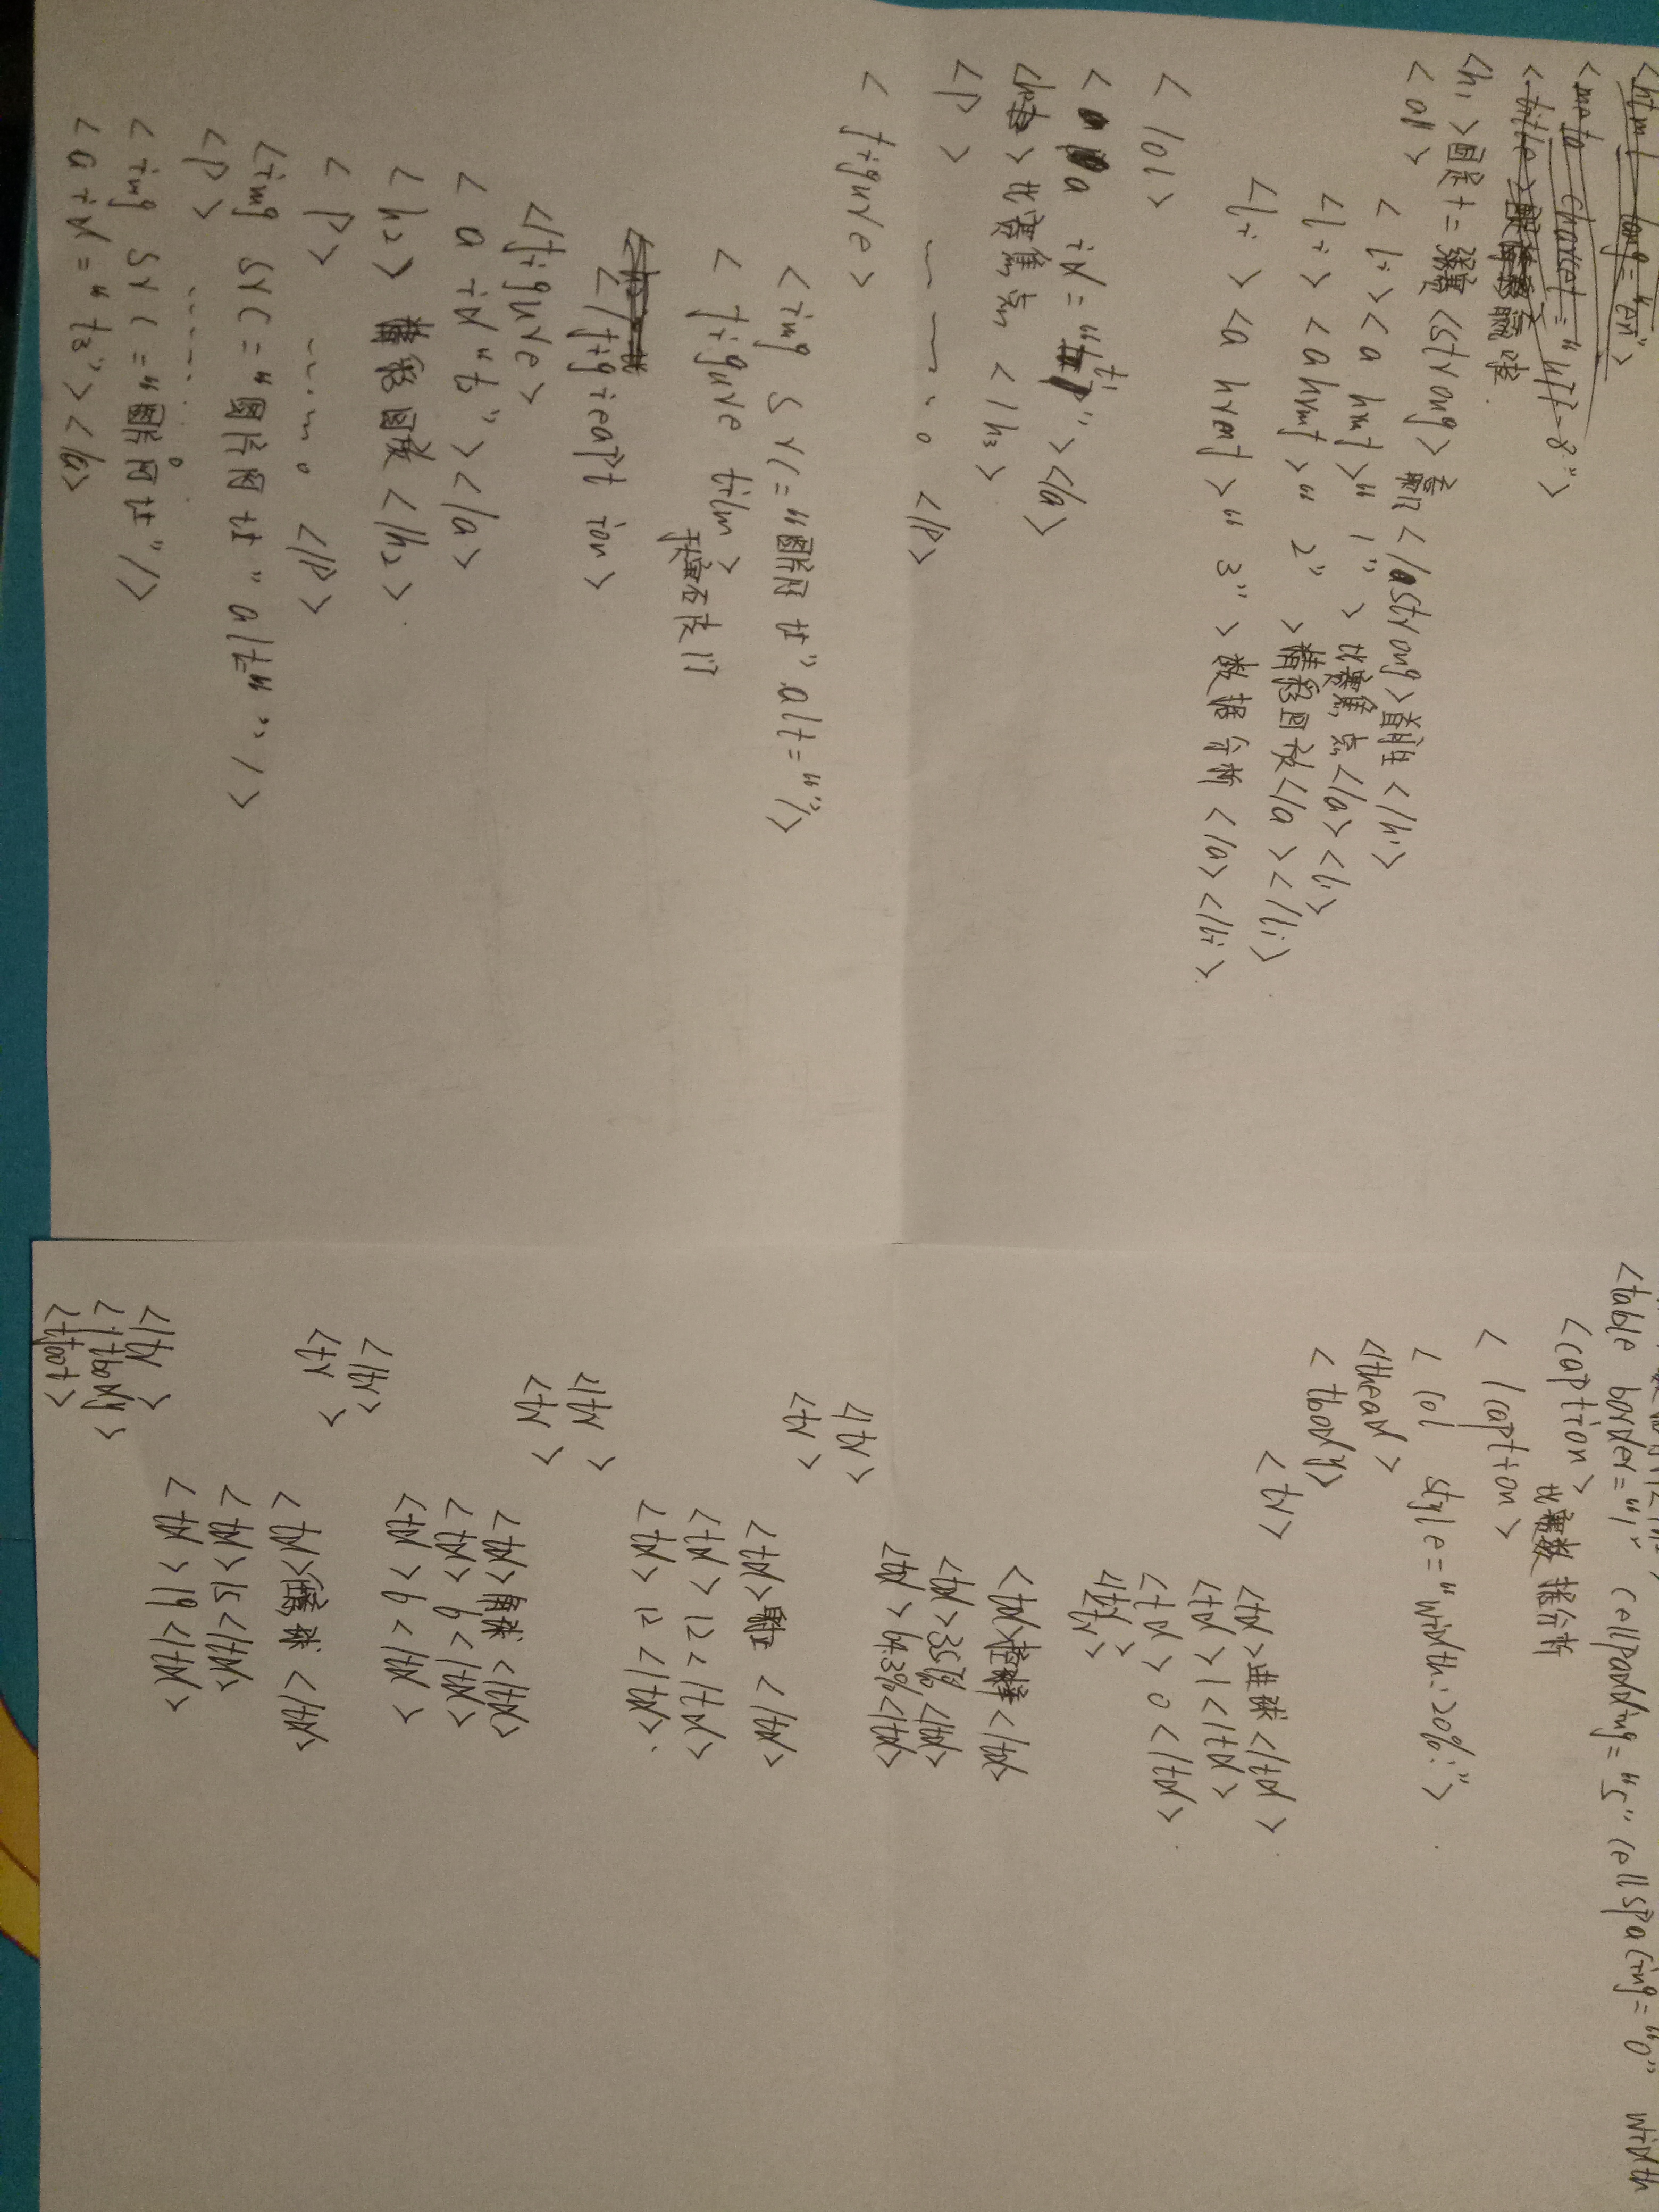 <html lang="en">
<meta charset="utf-8">
<title>
<h1>国足十二强赛<strong></strong>首胜</h1>
<oll>
<li><a href>"1">比赛焦点</a><li>
<li><ahref>"2">精彩回放</a></li>
<li><a href>"3">数据分析</a></li>
</ol>
<a id="t1"></a>
<h2>比赛焦点</h2>
<p> 。</p>
<figure>
<img src="图片网址" alt=""/>
<figure film>
</figieapt ion>
</figure>
<a id"t2"></a>
<h2>精彩回放</h2>
<p> ...... 。</p>
<img src="图片网址" alt=""/>
<p> ...... 。
<img src="图片网址"/>
<a id="t3"></a>
<table border="1" cellpadding="5" cellspacing="0" width
<caption>比赛数据分析
</caption>
<col style="width:20%;">
</thead>
<tbody>
<tr>
<td>进球</td>
<td>1</td>
<td>0</td>
</tr>
<td>控球率</td>
<td>35%</td>
<td>64.3%</td>
</tr>
<tr>
<td>射正</td>
<td>12</td>
<td>12</td>
</tr>
<tr>
<td>
<td>6</td>
<td>9</td>
</tr>
<tr>
<td>
<td>15</td>
<td>19</td>
</tr>
</tbody>
<tfoot>